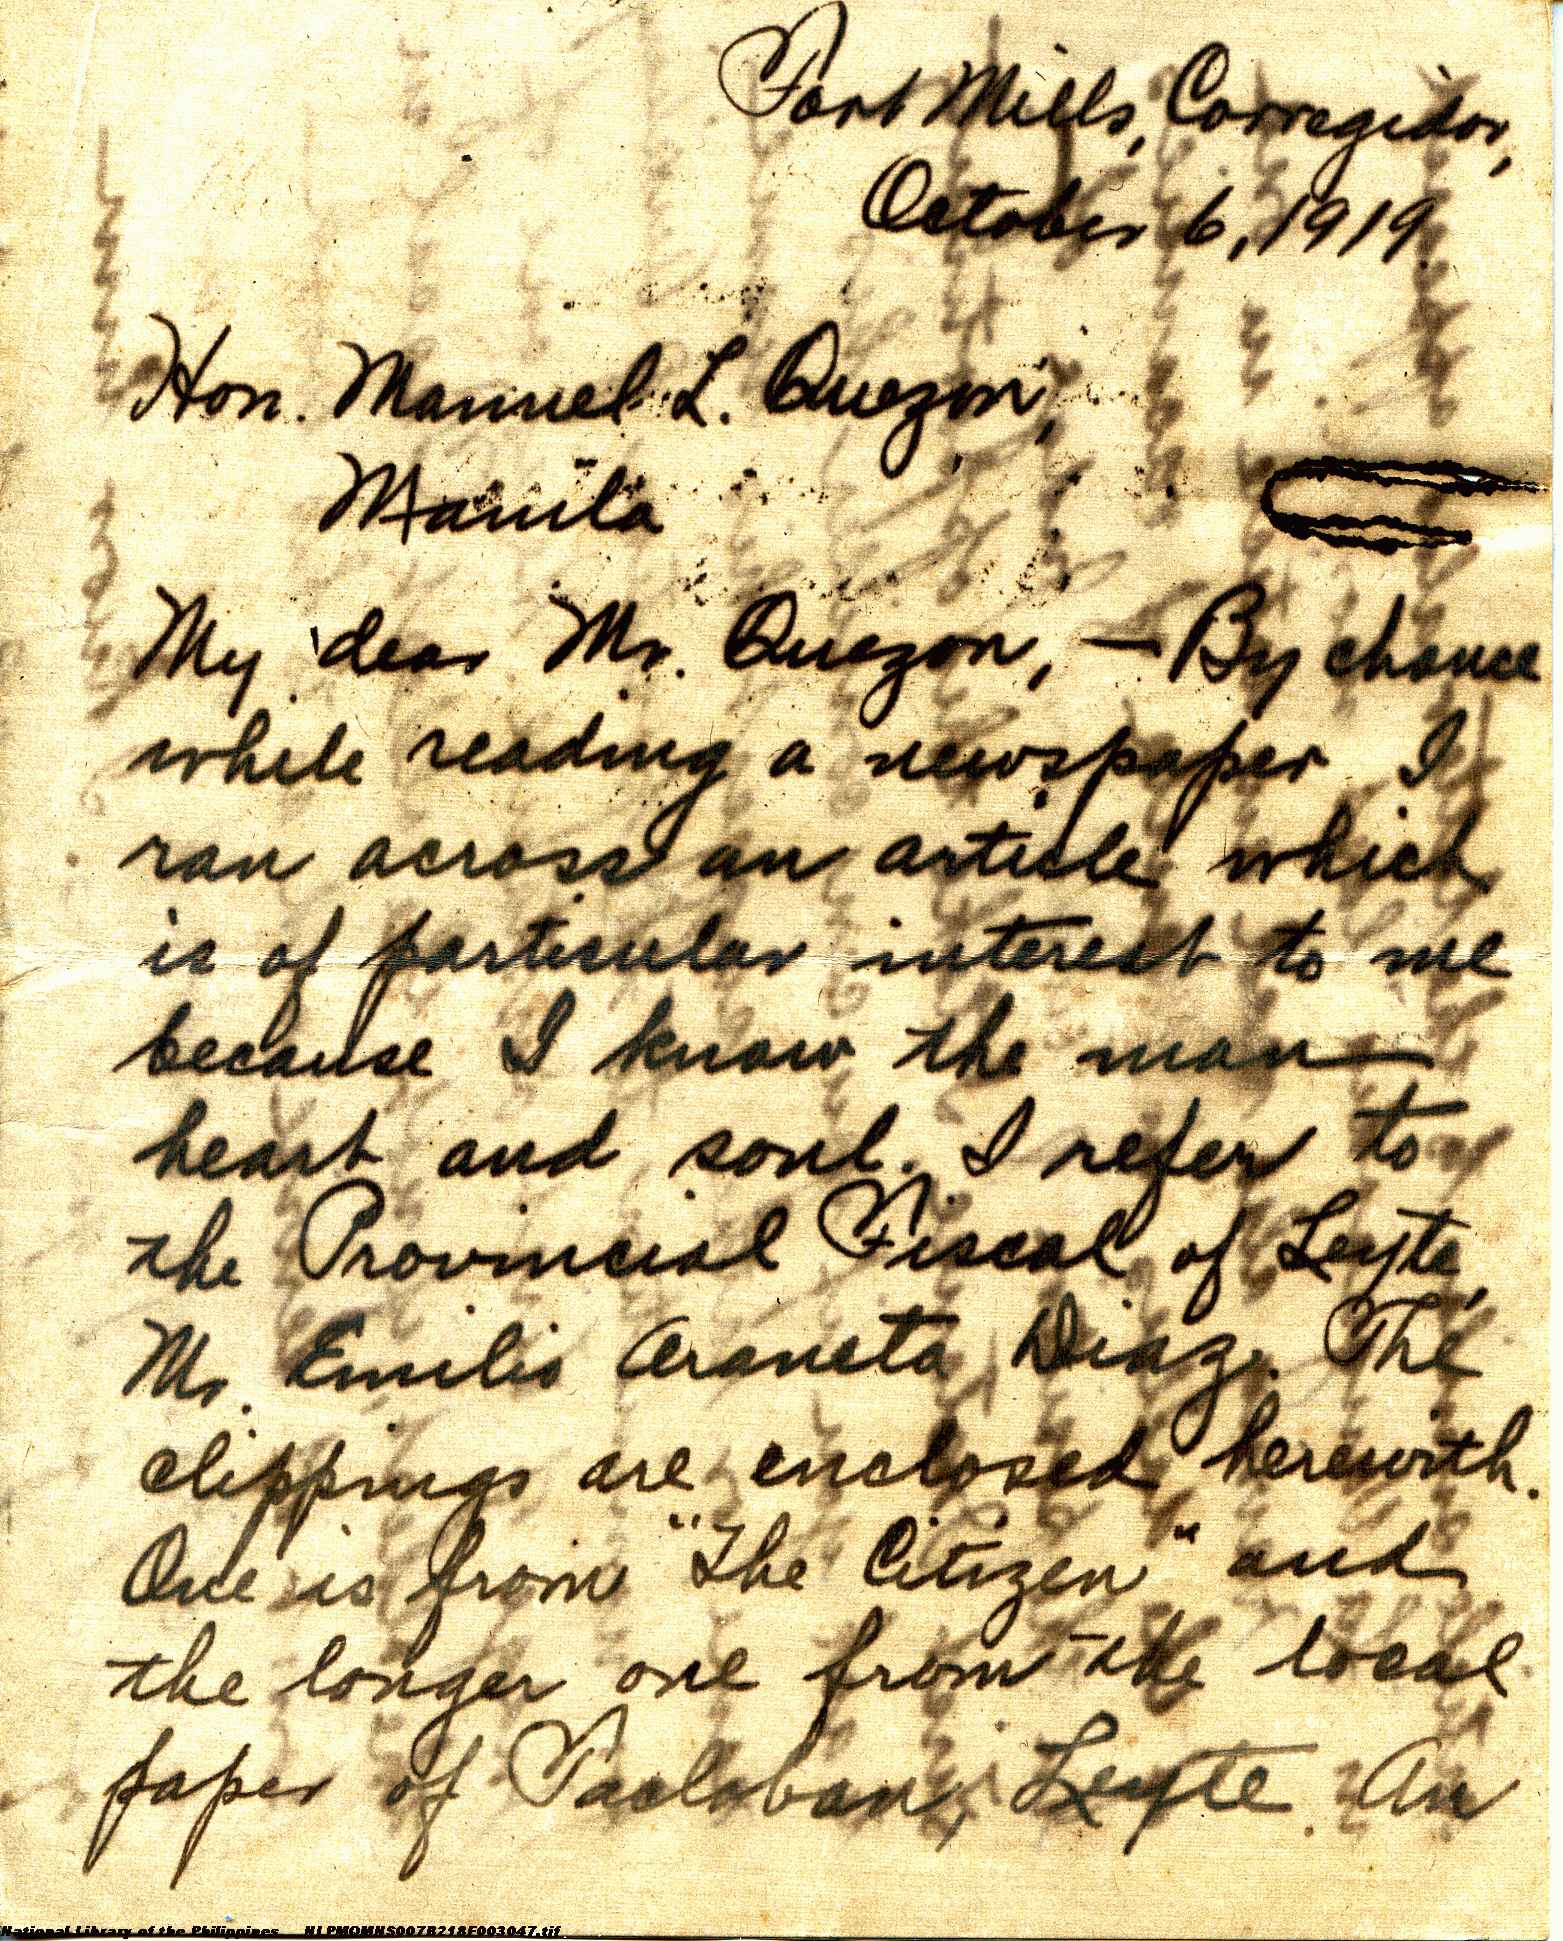 Fort Mills, Corregidor,
October 6, 1919.
Hon. Manuel L. Quezon,
Manila
My dear Mr. Quezon, — By chance
while reading a newspaper I
ran across an article which
is of particular interest to me
because I know the man
heart and soul. I refer to
the Provincial Fiscal of Leyte,
Mr. Emilio Araneta Diaz. The
clippings are enclosed herewith.
One is from "The Citizen" and
the longer one from the local
paper of Tacloban, Leyte. An
National Library of the Philippines NLPMQMNS007B218F003047.tif